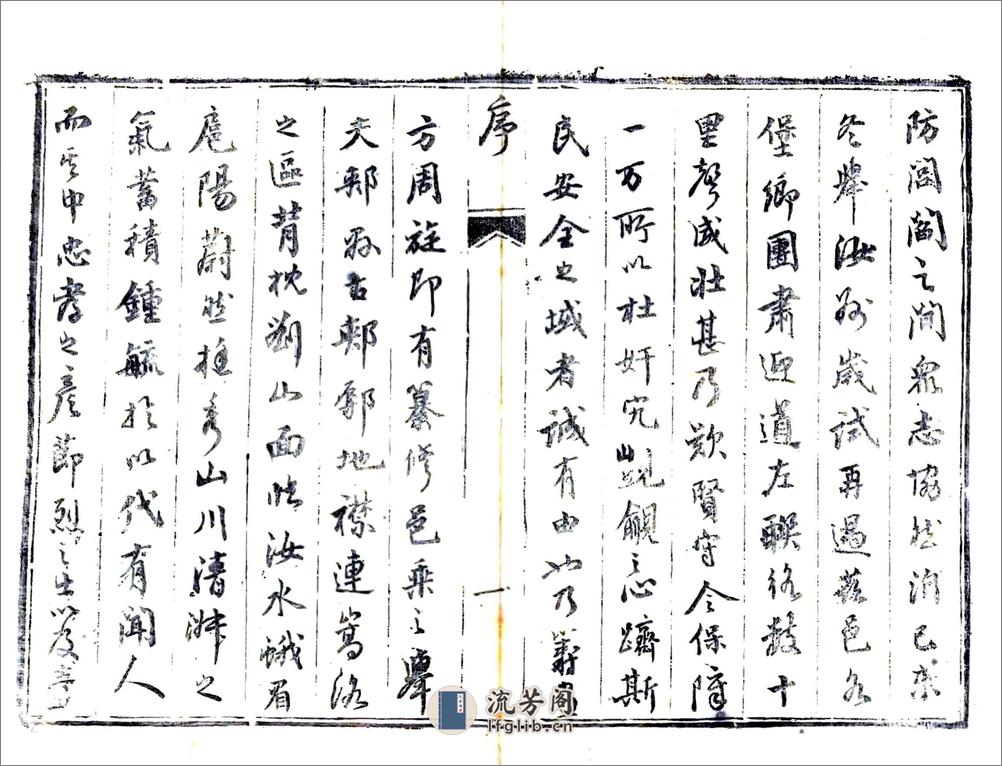 防閭閻之間眾志協然洎己未
冬舉汝郡歲試再過茲邑各
堡鄉團肅迎道左聯絡數十
里聲威壯甚乃歎賢守令保障
一方所以杜奸宄覬覦之心躋斯
民安全之域者誠有由也乃籌
序
一
方周旋即有纂修邑乘之舉
夫郟縣古郟鄏地襟連嵩洛
之區背枕劉山面臨汝水峨眉
扈陽蔚然挺秀山川清淑之
氣蓄積鍾毓於以代有聞人
而其中忠孝之彥節烈之
流芳阁
lfglib.cn